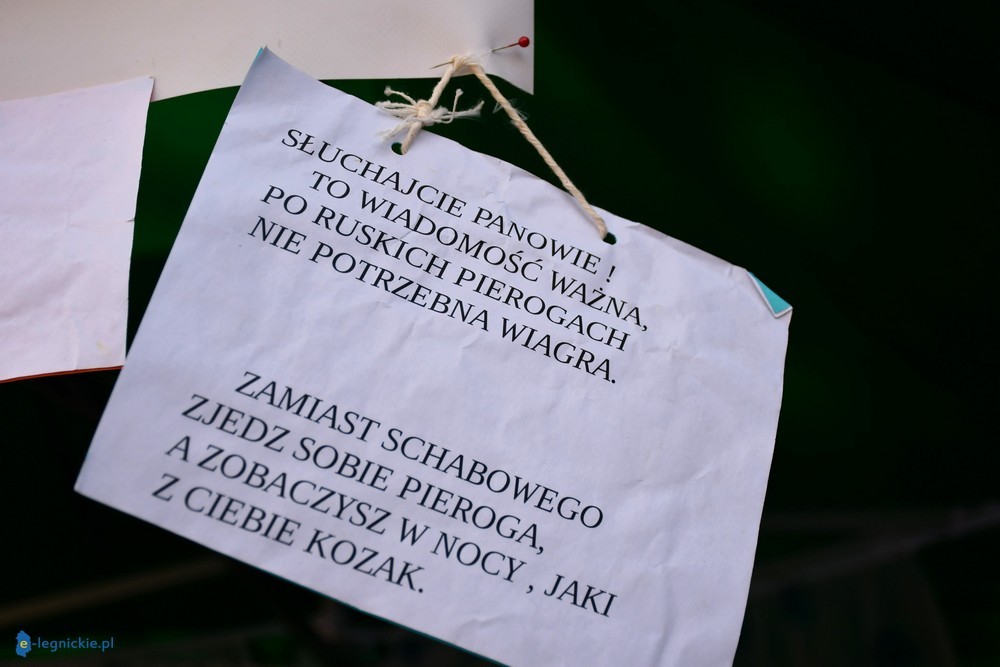 SŁUCHAJCIE PANOWIE !
TO WIADOMOŚĆ WAŻNA,
PO RUSKICH PIEROGACH
NIE POTRZEBNA WIAGRA.
ZAMIAST SCHABOWEGO
ZJEDZ SOBIE PIEROGA,
A ZOBACZYSZ W NOCY , JAKI
Z CIEBIE KOZAK.
e-legnickie.pl